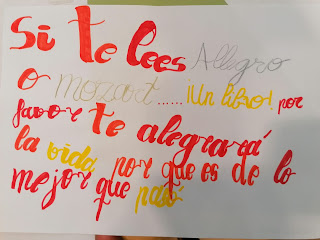 Si te lees Allegro
o Mozart...... ¡Un libro! por
favor te alegrará
la vida por que es de lo
mejor que pasó